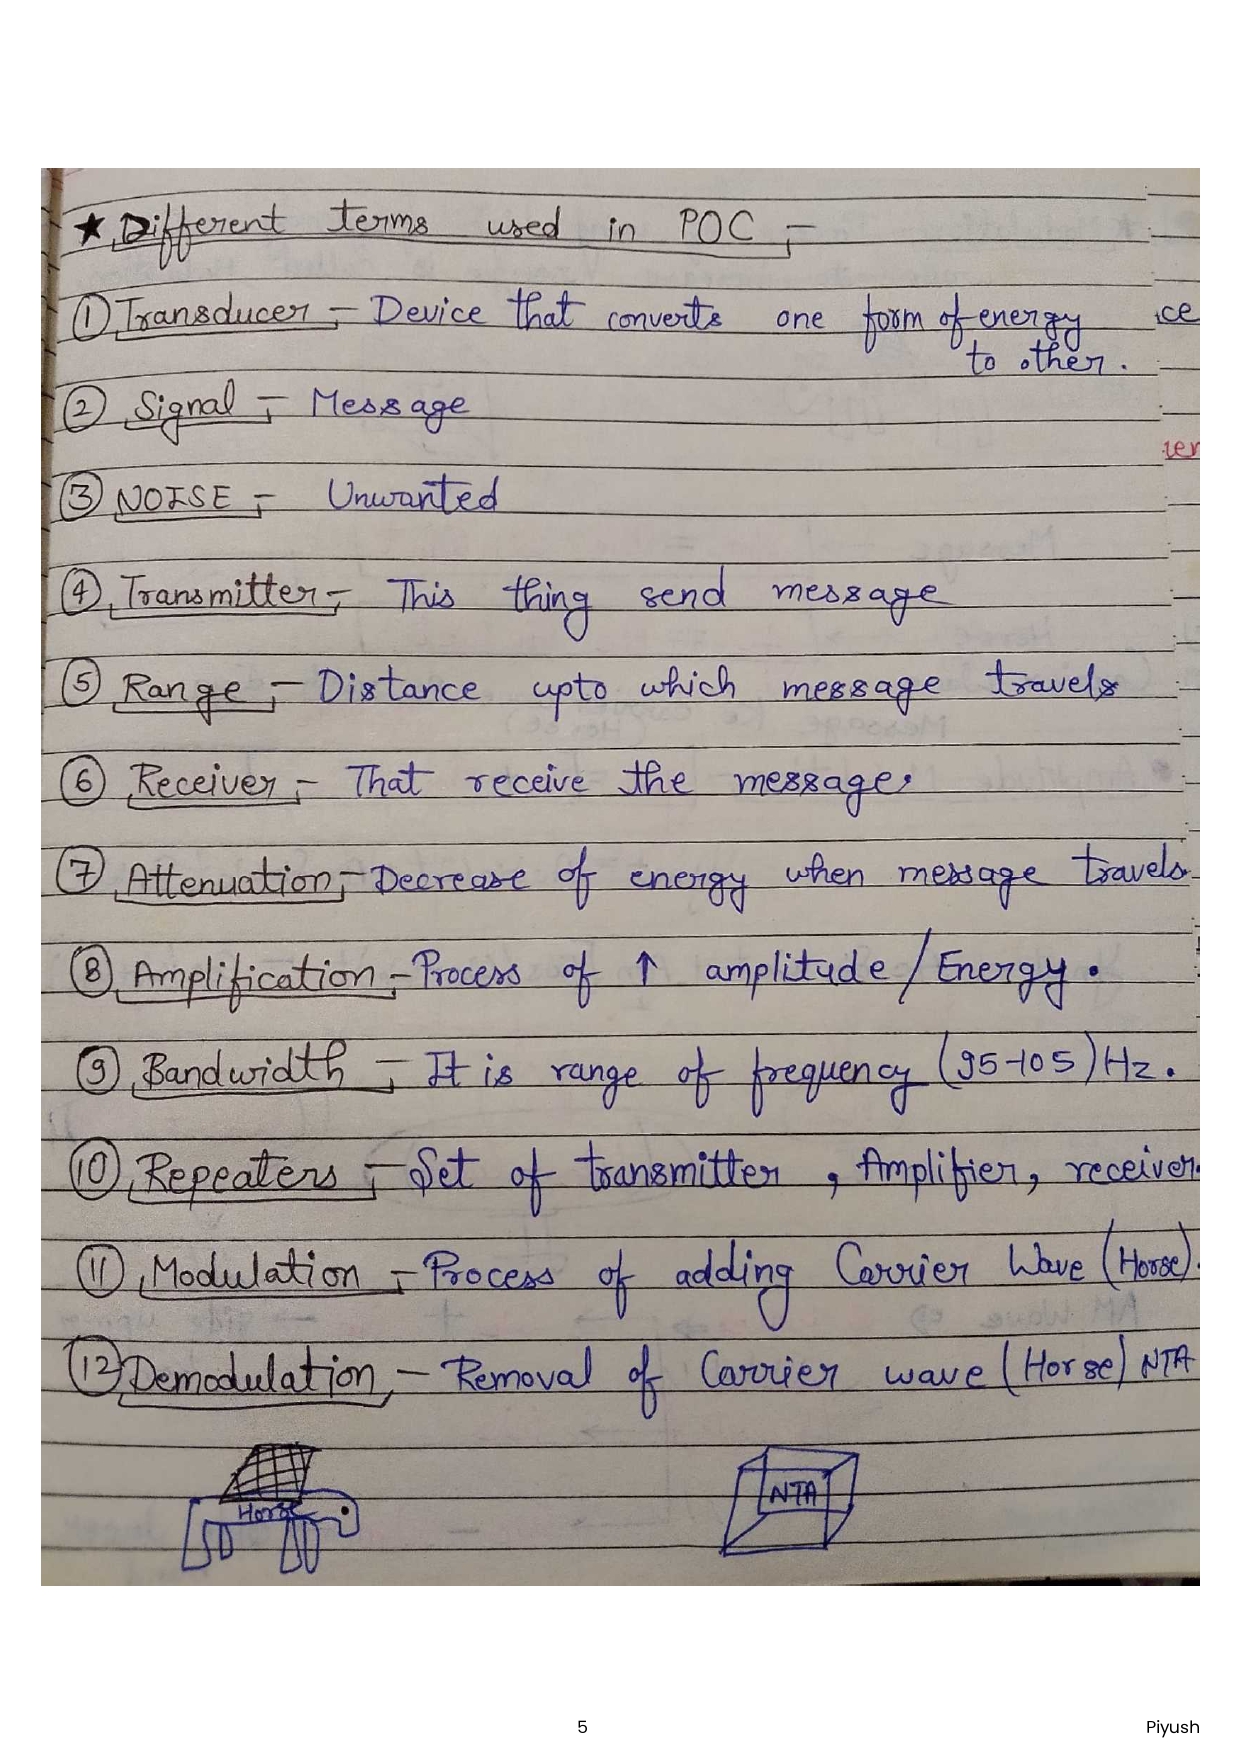 ★ Different terms used in POC :-
① Transducer :- Device that converts one form of energy
to other.
② Signal :- Message
③ NOISE :- Unwanted
④ Transmitter :- This thing send message
⑤ Range :- Distance upto which message travels
⑥ Receiver :- That receive the message.
⑦ Attenuation :- Decrease of energy when message travels.
⑧ Amplification :- Process of ↑ amplitude / Energy.
⑨ Bandwidth :- It is range of frequency (95-105) Hz.
⑩ Repeaters :- Set of transmitter , Amplifier, receiver.
⑪ Modulation :- Process of adding Carrier Wave (Horse).
⑫ Demodulation :- Removal of Carrier wave (Horse) NTA
Horse
NTA
5
Piyush